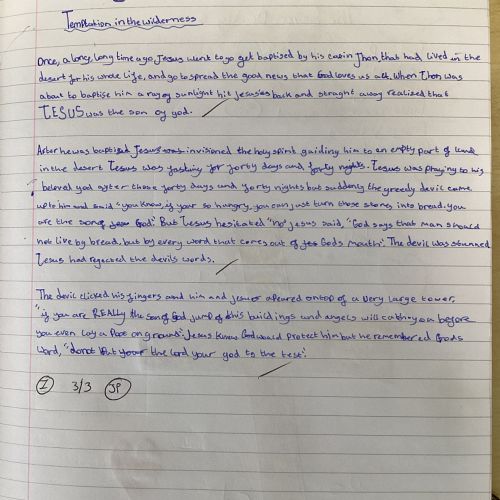 Temptation in the wilderness
Once, a long, long time ago Jesus went to go get baptised by his cosin Jhon, that had lived in the
desert for his whole life, and go to spread the good news that God loves us all. When Jhon was
about to baptise him a ray of sunlight hit jesusies back and straght away realized that
JESUS was the son of god.
After he was baptised Jesus was invisioned the holy spirit guiding him to an empty part of land
in the desert Jesus was fasting for forty days and forty nights. Jesus was praying to his
beloved god after those forty days and forty nights but suddenly the greedy devil came
up to him and said "you know, if your so hungry, you can just turn those stones into bread. you
are the son of God." But Jesus hesitated "no" jesus said, "God says that man should
not live by bread, but by every word that comes out of Gods mouth". The devil was stunned
Jesus had rejected the devils words.
The devil clicked his fingers and him and jesus apeared on top of a very large tower.
"if you are REALLy the son of God jump of this buildings and angels will cath you before
you even lay a foot on ground". Jesus knew God would protect him but he remembered Gods
Word, "do not put your the lord your god to the test".
I 3/3 JP